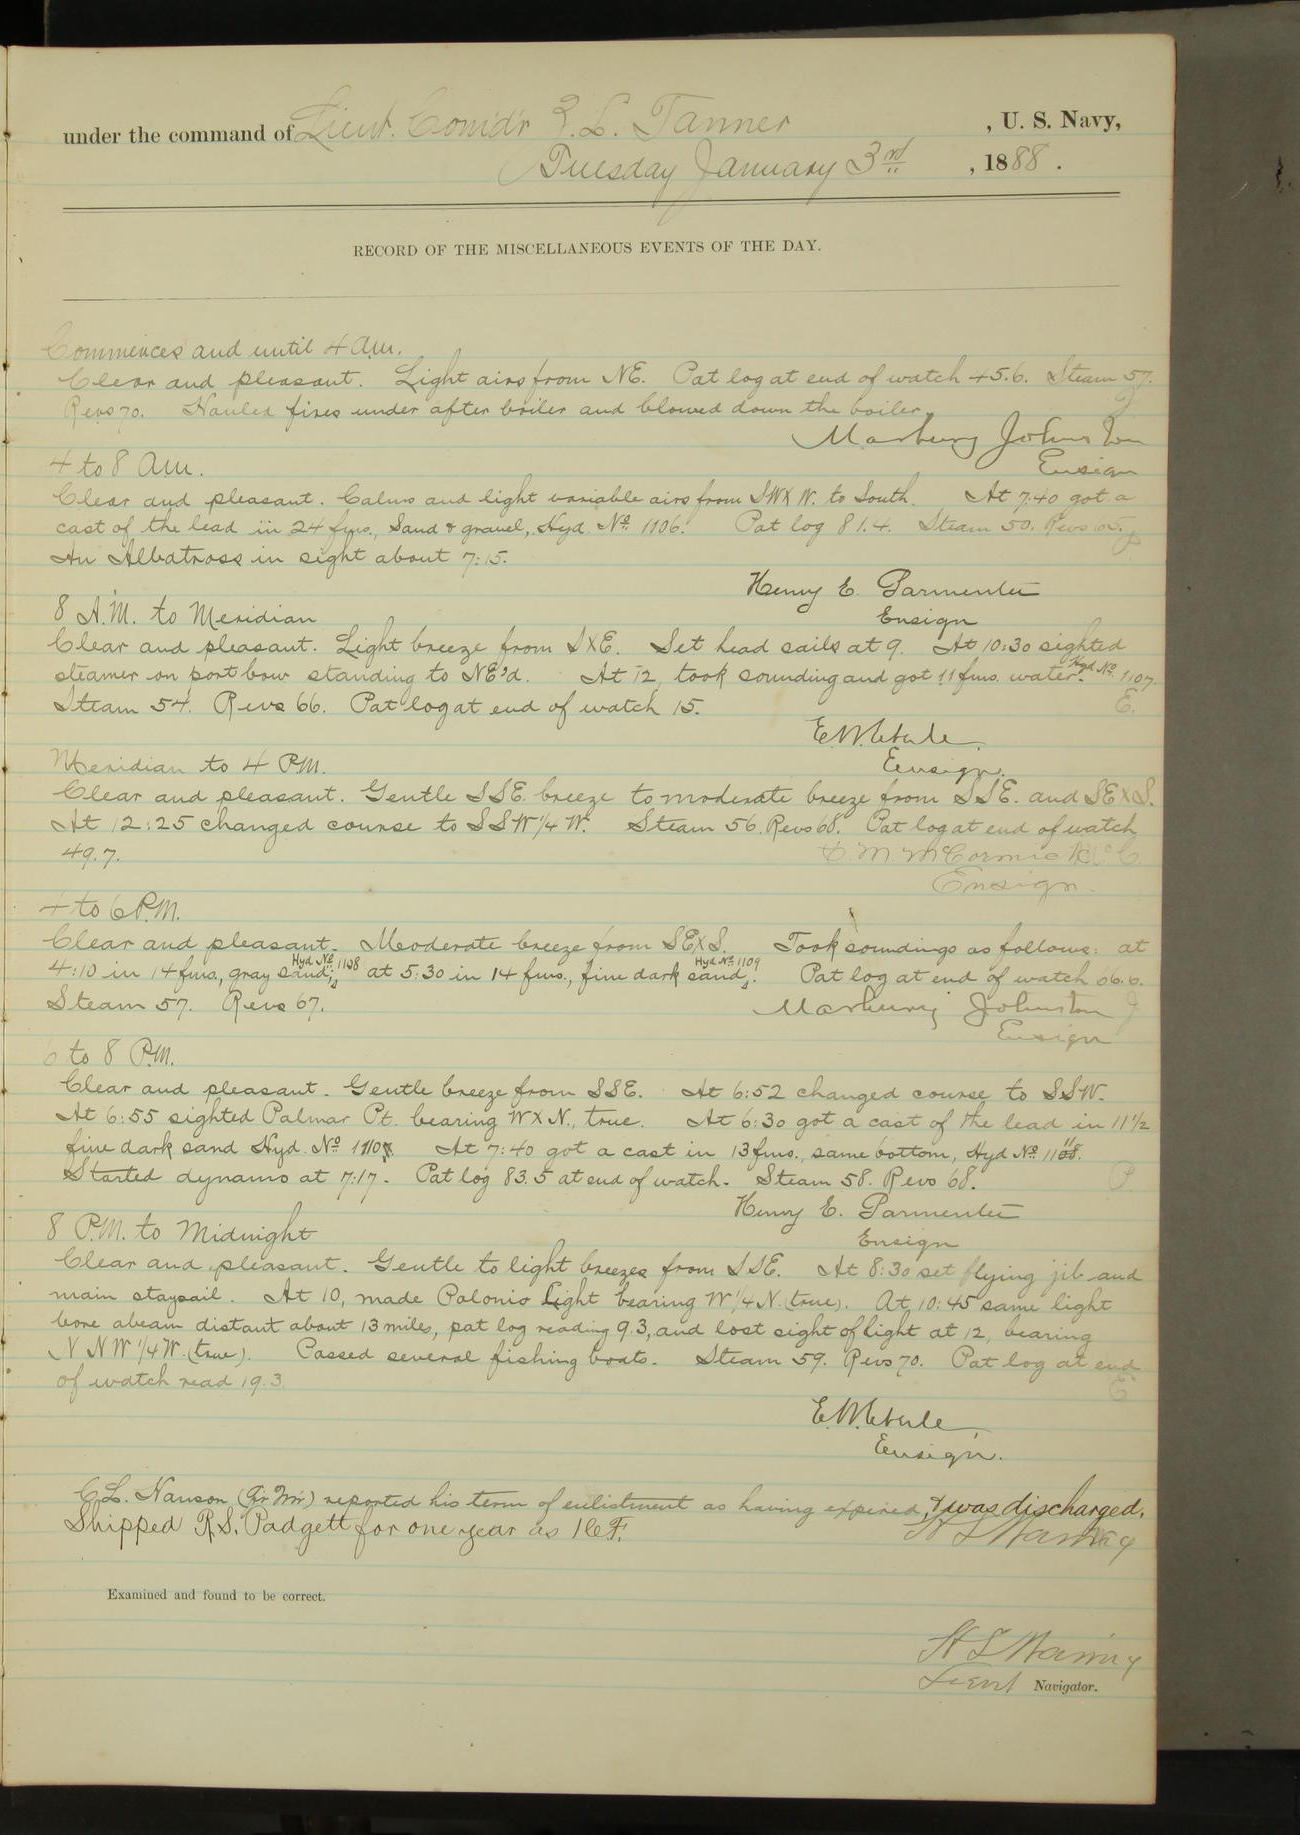 under the command of Lieut. Comd'r Z. L. Tanner, U. S. Navy,
Tuesday January 3rd, 1888.
RECORD OF THE MISCELLANEOUS EVENTS OF THE DAY.
Commences and until 4 a.m.
Clear and pleasant. Light airs from NE. Pat log at end of watch 45.6. Steam 57.
Revs 70. Hauled fires under after boiler and blowed down the boiler. J
Marbury Johnston
Ensign
4 to 8 a.m.
Clear and pleasant. Calms and light variable airs from SWXW. to South. At 7.40 got a
cast of the lead in 24 fms., Sand & gravel, Hyd. No. 1106. Pat log 81.4. Steam 50. Revs 65. P
An Albatross in sight about 7:15.
Henry E. Parmenter
Ensign
8 A.M. to Meridian
Clear and pleasant. Light breeze from SXE. Set head sails at 9. At 10:30 sighted
steamer on port bow standing to NE'd. At 12, took sounding and got 11 fms. water. Hyd. No. 1107.
Steam 54. Revs 66. Pat log at end of watch 15. E.
E.W. Eberle.
Ensign.
Meridian to 4 P.M.
Clear and pleasant. Gentle SSE. breeze to moderate breeze from SSE. and SEXS.
At 12:25 changed course to SSW 1/4 W. Steam 56. Revs 68. Pat log at end of watch
49.7. McCormick
Ensign.
4 to 6 P.M.
Clear and pleasant. Moderate breeze from SEXS. Took soundings as follows: at
4:10 in 14 fms., gray sand; Hyd No. 1108 at 5:30 in 14 fms., fine dark sand. Hyd No. 1109 Pat log at end of watch 66.6.
Steam 57. Revs 67.
Marbury Johnston J
Ensign
6 to 8 P.M.
Clear and pleasant. Gentle breeze from SSE. At 6:52 changed course to SSW.
At 6:55 sighted Palmar Pt. bearing WXN., true. At 6:30 got a cast of the lead in 11 1/2
fine dark sand Hyd. No. 1110. At 7:40 got a cast in 13 fms., same bottom, Hyd No. 1111.
Started dynamo at 7:17. Pat log 83.5 at end of watch. Steam 58. Revs 68. P.
Henry E. Parmenter
Ensign
8 P.M. to Midnight
Clear and pleasant. Gentle to light breezes from SSE. At 8:30 set flying jib and
main staysail. At 10, made Polonio Light bearing W 1/4 N. (true). At 10:45 same light
bore abeam distant about 13 miles, pat log reading 9.3, and lost sight of light at 12, bearing
NNW 1/4 W. (true). Passed several fishing boats. Steam 59. Revs 70. Pat log at end
of watch read 19.3. E
E.W. Eberle
Ensign.
C.L. Hanson reported his term of enlistment as having expired, & was discharged.
Shipped R.S. Padgett for one year as 1 C F.
Examined and found to be correct.
Lieut Navigator.